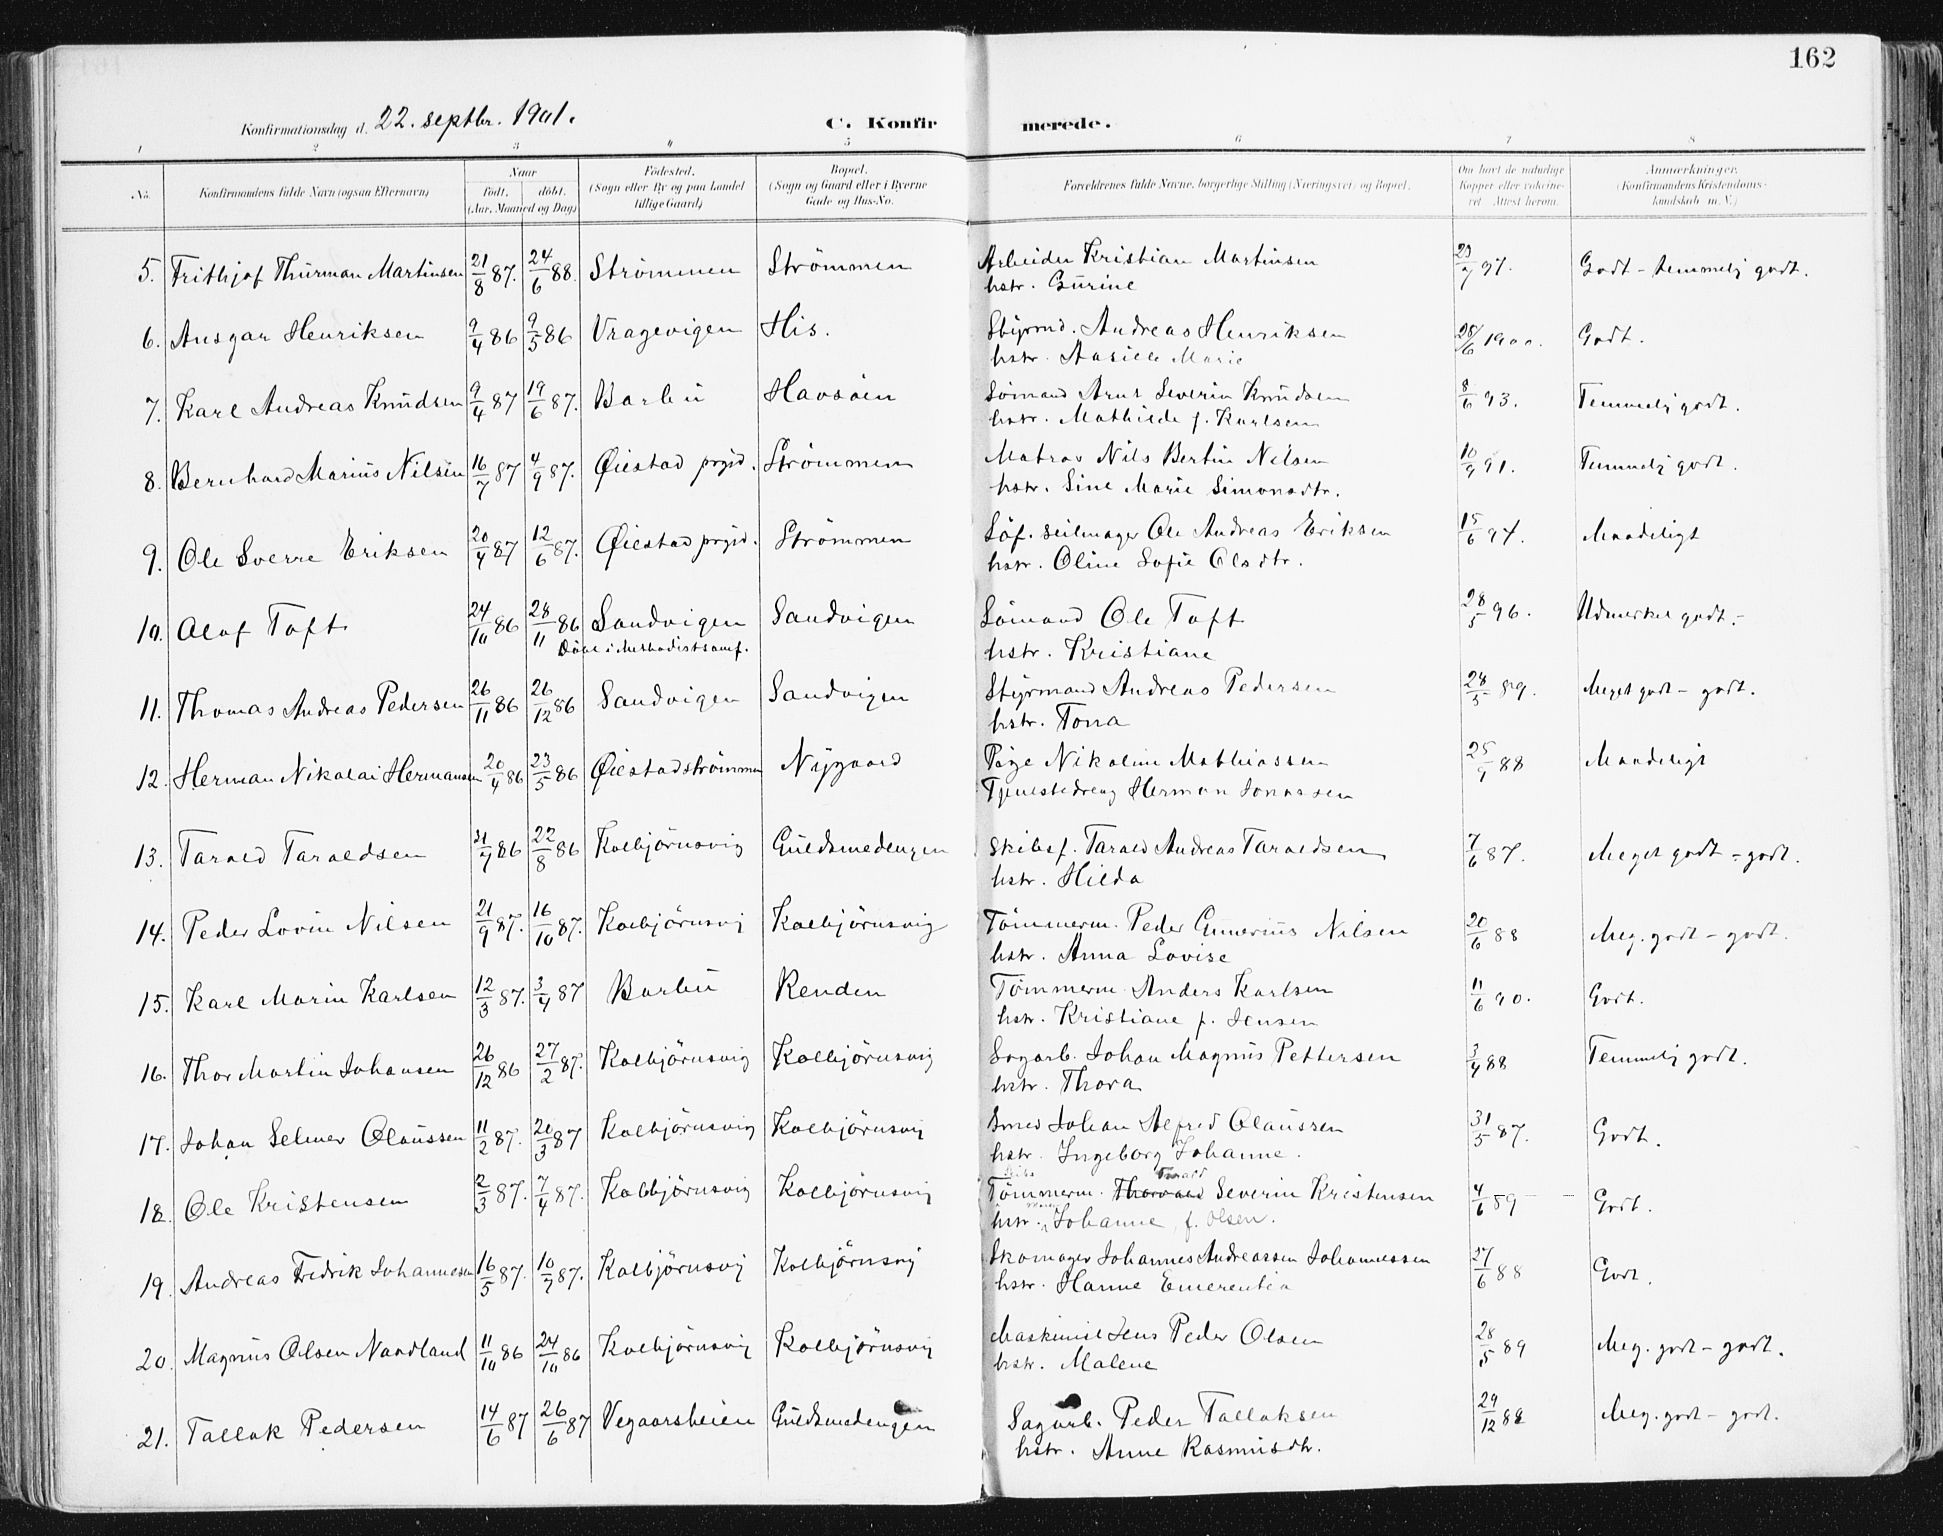 162
Konfirmationsdag d. 22. septbr. 1901.
C. Konfirmerede.
1 2 3 4 5 6 7 8
No. Konfirmandens fulde Navn (ogsaa Efternavn) Naar født. døbt. (Aar, Maaned og Dag) Fødested. (Sogn eller By og paa Landet tillige Gaard) Bopæl. (Sogn og Gaard eller i Byerne Gade og Hus-No. Forældrenes fulde Navne, borgerlige Stilling (Næringsvei) og Bopæl. Om havt de naturlige Kopper eller vaccineret. Attest herom. Anmerkninger. (Konfirmandens Kristendomskundskab m. V.)
5. Frithjof Thurman Martinsen 21/8 87. 24/6 88. Strömmen Strömmen Arbeider Kristian Martinsen 23/7 97. Godt - temmelig godt.
hstr. Gurine
6. Ansgar Henriksen 9/4 86 9/5 86 Vragevigen His. Styrmd. Andreas Henriksen 28/6 1900. Godt.
hstr. Aasille Marie
7. Karl Andreas Knudsen 9/4 87 19/6 87. Barbu Havsöen Sömand Arnt Severin Knudsen 8/6 93. Temmelig godt.
hstr. Mathilde f. Karlsen
8. Bernhard Marius Nilsen 16/7 87 4/9 87. Øiestad prgjd. Strömmen Matros Nils Bertin Nilsen 10/9 91. Temmelig godt.
hstr. Sine Marie Simonsdtr.
9. Ole Sverre Eriksen 20/4 87 12/6 87. Øiestad prgjd. Strömmen Söf. seilmager Ole Andreas Eriksen 15/6 94. Maadeligt
hstr. Oline Sofie Olsdtr.
10. Olaf Toft 24/10 86 28/11 86 Sandvigen Sandvigen Sömand Ole Toft 28/5 96. Udmerket godt.-
Döbt i Methodistsamf. hstr. Kristiane
11. Thomas Andreas Pedersen 26/11 86 26/12 86 Sandvigen Sandvigen Styrmand Andreas Pedersen 28/5 89. Meget godt - godt.
hstr. Tona
12. Herman Nikolai Hermansen 20/4 86 23/5 86 Øiestadströmmen Nygaard Pige Nikoline Mathiassen 25/9 88 Maadeligt
Tjenestedreng Herman Jonassen
13. Tarald Taraldsen 31/7 86 22/8 86 Kolbjörnsvig Guldsmedengen Skibsf. Tarald Andreas Taraldsen 7/6 87. Meget godt - godt.
hstr. Hilda
14. Peder Lovin Nilsen 21/9 87. 16/10 87. Kolbjörnsvi Kolbjörnsvig Tömmerm. Peder Gunerius Nilsen 20/6 88 Meg. godt - godt.
hstr. Anna Lovise
15. Karl Marin Karlsen 12/3 87. 3/4 87 Barbu Renden Tömmerm. Anders Karlsen 11/6 90. Godt.
hstr. Kristiane f. Jensen
16. Thor Martin Johansen 26/12 86 27/2 87. Kolbjörnsvig Kolbjörnsvig Sagarb. Johan Magnus Pettersen 3/4 88 Temmelig godt.
hstr. Thora
17. Johan Selmer Olaussen 11/2 87. 20/3 87 Kolbjörnsvig Kolbjörnsvig Smed Johan Alfred Olaussen 31/5 87. Godt.
hstr. Ingeborg Johanne.
18. Ole Kristensen 2/3 87. 7/4 87. Kolbjörnsvig Kolbjörnsvig Skibs Tömmerm. Thorvald Tarald Severin Kristensen 4/6 89 Godt.
hstr. Johanne f. Olsen.
19. Andreas Fredrik Johannesen 16/5 87. 10/7 87. Kolbjörnsvig Kolbjörnsvig Skomager Johannes Andreassen Johannessen 27/6 88 Godt.
hstr. Hanne Emerentia
20. Magnus Olsen Nordland 11/10 86 24/10 86 Kolbjörnsvig Kolbjörnsvig Maskinist Jens Peder Olsen 28/5 89 Meg. godt - godt.
hstr. Malene
21. Tallak Pedersen 14/6 87 26/6 87 Vegaarsheien Guldsmedengen Sagarb. Peder Tallaksen 29/12 88 Meg. godt - godt.
hstr. Anne Rasmusdtr.